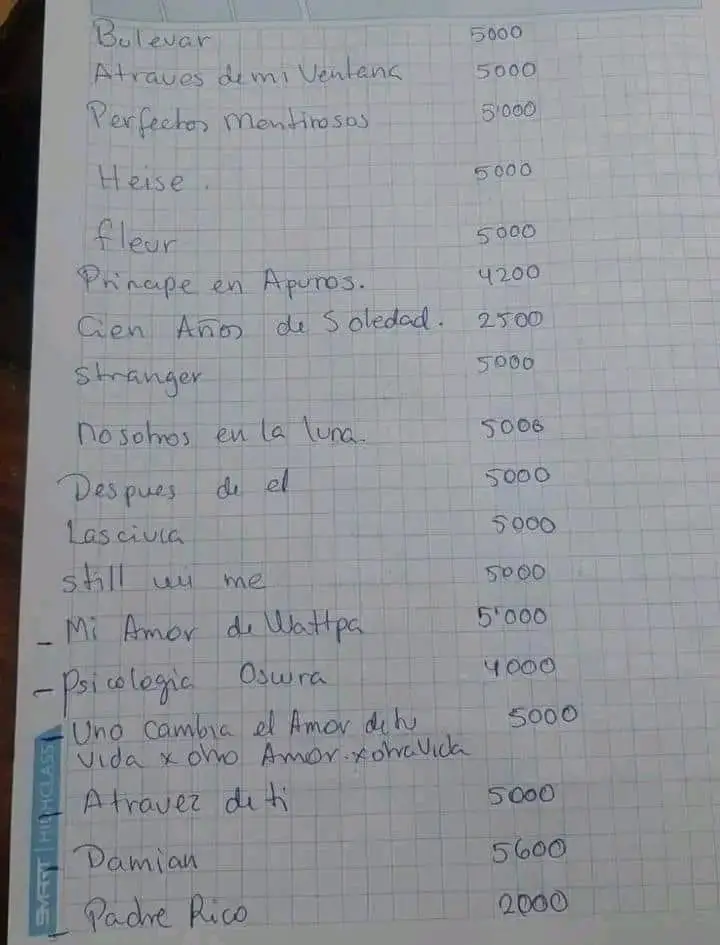 Bulevar 5000
Atraves de mi Ventana 5000
Perfectos mentirosos 5'000
Heise. 5000
fleur 5000
Principe en Apuros. 4200
Cien Años de Soledad. 2500
stranger 5000
nosotros en la luna. 5000
Despues de el 5000
Lascivia 5000
still me 5000
- Mi Amor de Wattpa 5'000
- Psicologia Oswra 4000
- Uno cambia el Amor de tu 5000
vida x otro Amor. x otra vida
- Atravez de ti 5000
- Damian 5600
- Padre Rico 2000
SMART | HIGHCLASS